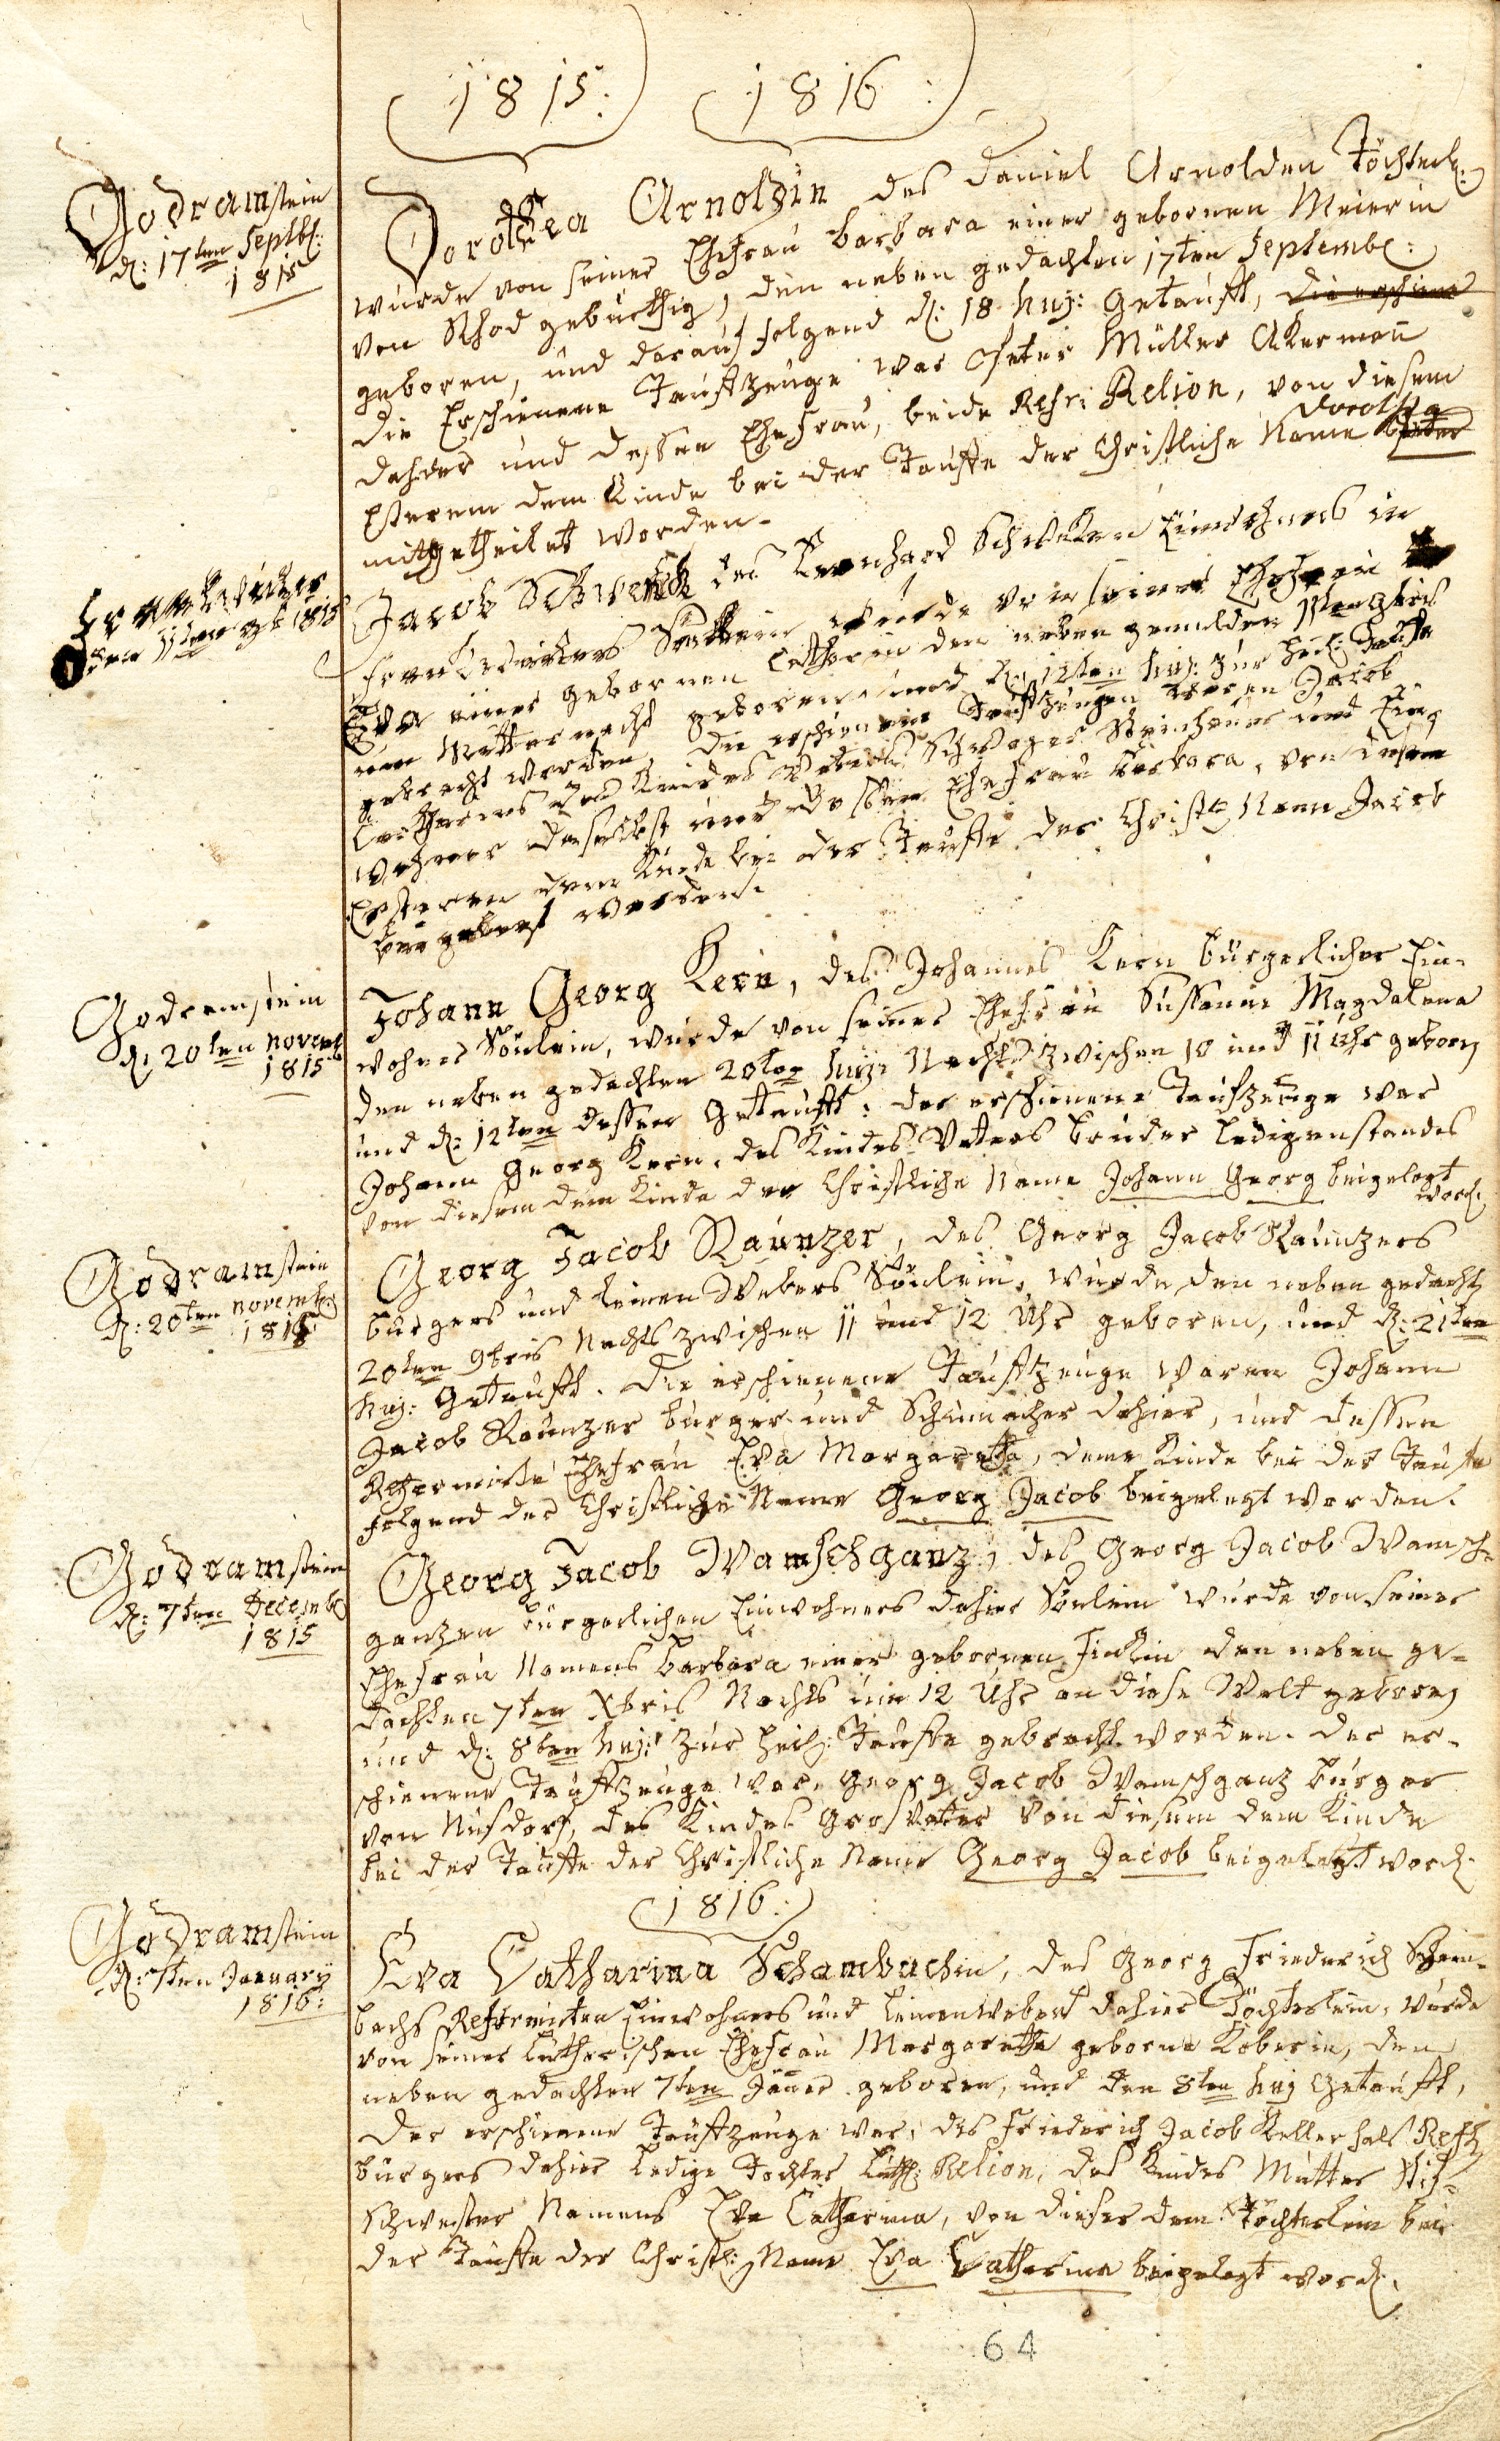 1815: 1816:
Godramstein
d: 17ten Septbr:
1815
Dorothea Arnoldin des Daniel Arnolden Töchterl:
wurde von seiner Ehefrau Barbara einer gebornen Meierin
von Rhod gebürthig, den neben gedachten 17ten Septembr:
geboren, und darauf folgend d: 18 huj: getaufft, die erschiene
die Erschienene Taufzeuge war Peter Müller Akermañ
dahier und dessen Ehefrau, beide Refr: Relion, von diesem
Esterem dem Kinde bei der Tauffe der Christliche Name Dorothea
mitgetheilet worden.
Frankweiler
den 11ten 9br 1815
Jacob Schwenck des Leonhard Einwohners in
Frankweiler Sönlein wurde von seiner Ehefrau
Eva einer gebornen den neben gemelden 11ten 9bris
um Mitternacht geboren und d: 12ten huj: zur heil: Taufe
gebracht worden, die erschienene Taufzeugen waren Jacob
des Kindes Vaters Schwager Steinhauer und Ein-
wohner daselbst und dessen Ehefrau Barbara, von diesem
Ersteren dem Kinde bei der Tauffe der Christl: Name Jacob
beigelegt worden.
Godramstein
d: 20ten Novemb
1815
Johann Georg Kern, des Johannes Kern bürgerlicher Ein-
wohner Sönlein, wurde von seiner Ehefrau Susanna Magdalena
den neben gedachten 20ten huj: Nachts zwischen 10 und 11 Uhr geboren
und d: 12ten dessen Getaufft. der erschienene Taufzeuge war
Johann Georg Kern, des Kindes Vaters Bruder ledigenstandes
von diesem dem Kinde der Christliche Name Johann Georg beigelegt
word:
Godramstein
d: 20ten Novemb:
1815
Georg Jacob Raunzer, des Georg Jacob Raunzers
Burgers und Leinen Webers Sönlein, wurde den neben gedacht
20ten 9bris Nachts zwischen 11 und 12 Uhr geboren, und d: 21ten
huj: Getaufft. Die erschienene Taufzeuge waren Johann
Jacob Raunzer Burger und Schumacher dahier, und dessen
Reformirte Ehefrau Eva Margaretha, deme Kinde bei der Taufe
folgend der Christliche Name Georg Jacob beigelegt worden.
Godramstein
d: 7ten Decemb
1815
Georg Jacob Wamschganz, des Georg Jacob Wamsch-
ganzen bürgerlichen Einwohners dahier Sönlein wurde von seiner
Ehefrau Namens Barbara einer gebornen Finkin den neben ge-
dachten 7ten Xbris Nachts um 12 Uhr an diese Welt geboren
und d: 8ten huj: zur heil: Tauffe gebracht worden. der er-
schienene Taufzeuge war, Georg Jacob Wamschganz Burger
von Nusdorf, des Kindes Grosvater von diesem dem Kinde
bei der Tauffe der Christliche Name Georg Jacob beigelegt word:
1816:
Godramstein
d: 7ten January
1816:
Eva Catharina Schambachin, des Georg Friederich Scham-
bachs Reformirten Einwohners und Leinenwebers dahier Töchterlein, wurde
von seiner Lutherischen Ehefrau Margaretha geborne Koberin, den
neben gedachten 7ten Jäner geboren, und den 8ten huj Getaufft,
der erschienene Taufzeuge war, des Friederich Jacob Kellerhals Refr
burgers dahier Ledige Tochter Luth: Relion, des Kindes Mutter Stif-
schwester Namens Eva Catharina, von dieser dem Töchterlein bei
der Tauffe der Christl: Name Eva Catharina beigelegt word:
64